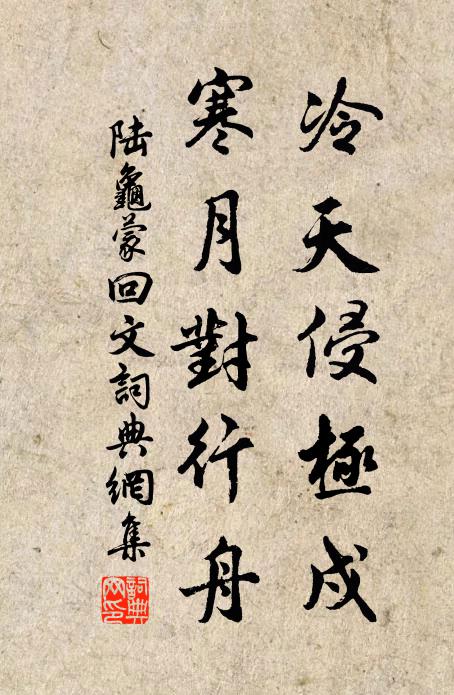 冷天侵極戍
寒月對行舟
陸龜蒙回文詞典網集
詞典網印